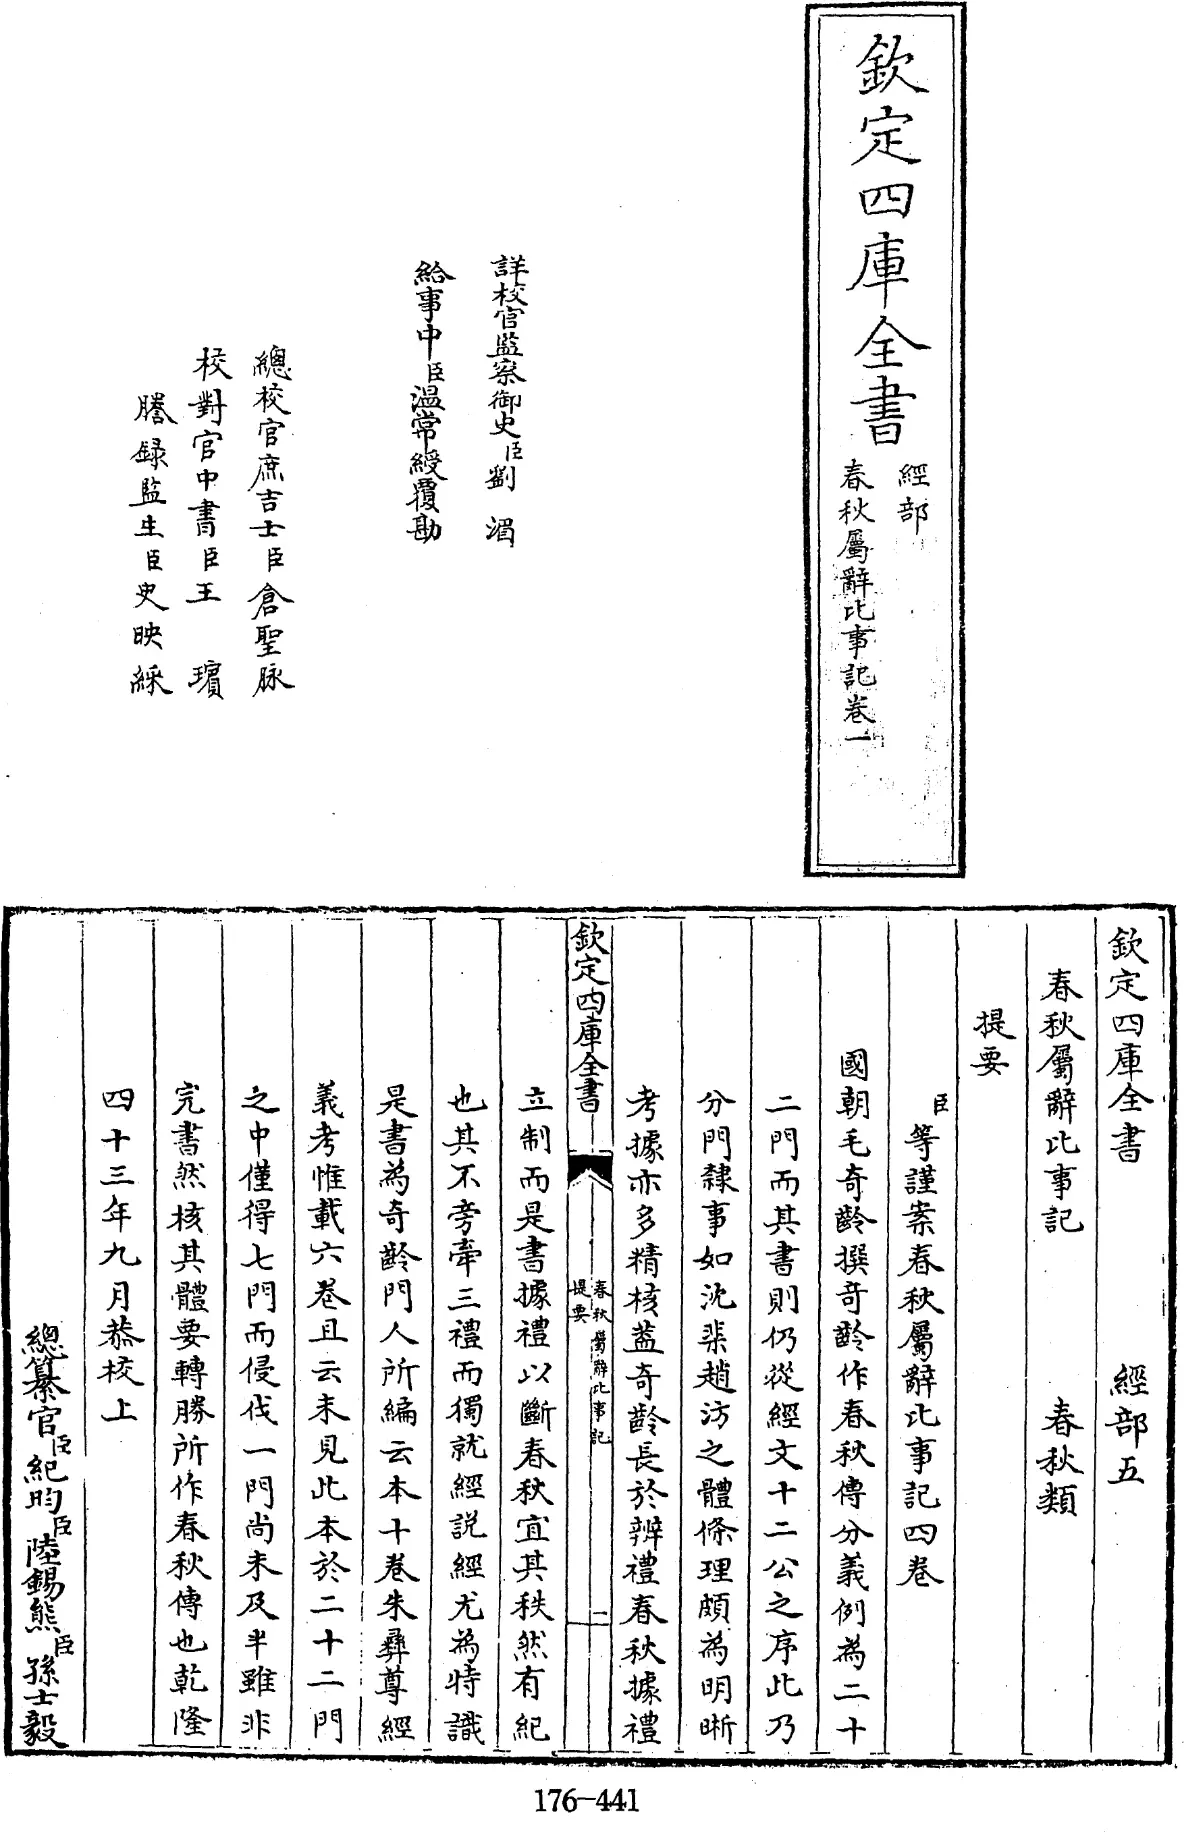 欽定四庫全書
經部
春秋屬辭比事記卷一
詳校官監察御史臣劉湄
給事中臣温常綬覆勘
總校官庶吉士臣倉聖脉
校對官中書臣王瑸
謄録監生臣史映綵
欽定四庫全書 經部五
春秋屬辭比事記 春秋類
提要
臣等謹案春秋屬辭比事記四卷
國朝毛奇齡撰奇齡作春秋傳分義例為二十
二門而其書則仍從經文十二公之序此乃
分門隸事如沈棐趙汸之體條理頗為明晰
考據亦多精核葢奇齡長於辨禮春秋據禮
欽定四庫全書
春秋屬辭比事記
提要
二
立制而是書據禮以斷春秋宜其秩然有紀
也其不旁牽三禮而獨就經説經尤為特識
是書為奇齡門人所編云本十卷朱彝尊經
義考惟載六卷且云未見此本於二十二門
之中僅得七門而侵伐一門尚未及半雖非
完書然核其體要轉勝所作春秋傳也乾隆
四十三年九月恭校上
總纂官臣紀昀臣陸錫熊臣孫士毅
176-441